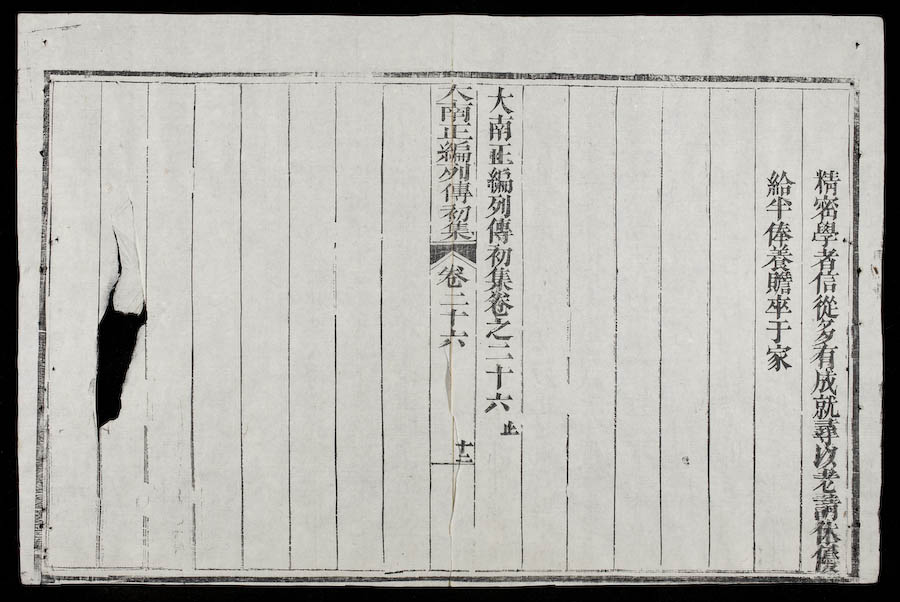 精密學者信從多有成就尋以老請休優
給半俸養贍卒于家
大南正編列傳初集卷之二十六 止
大南正編列傳初集 卷二十六 十二